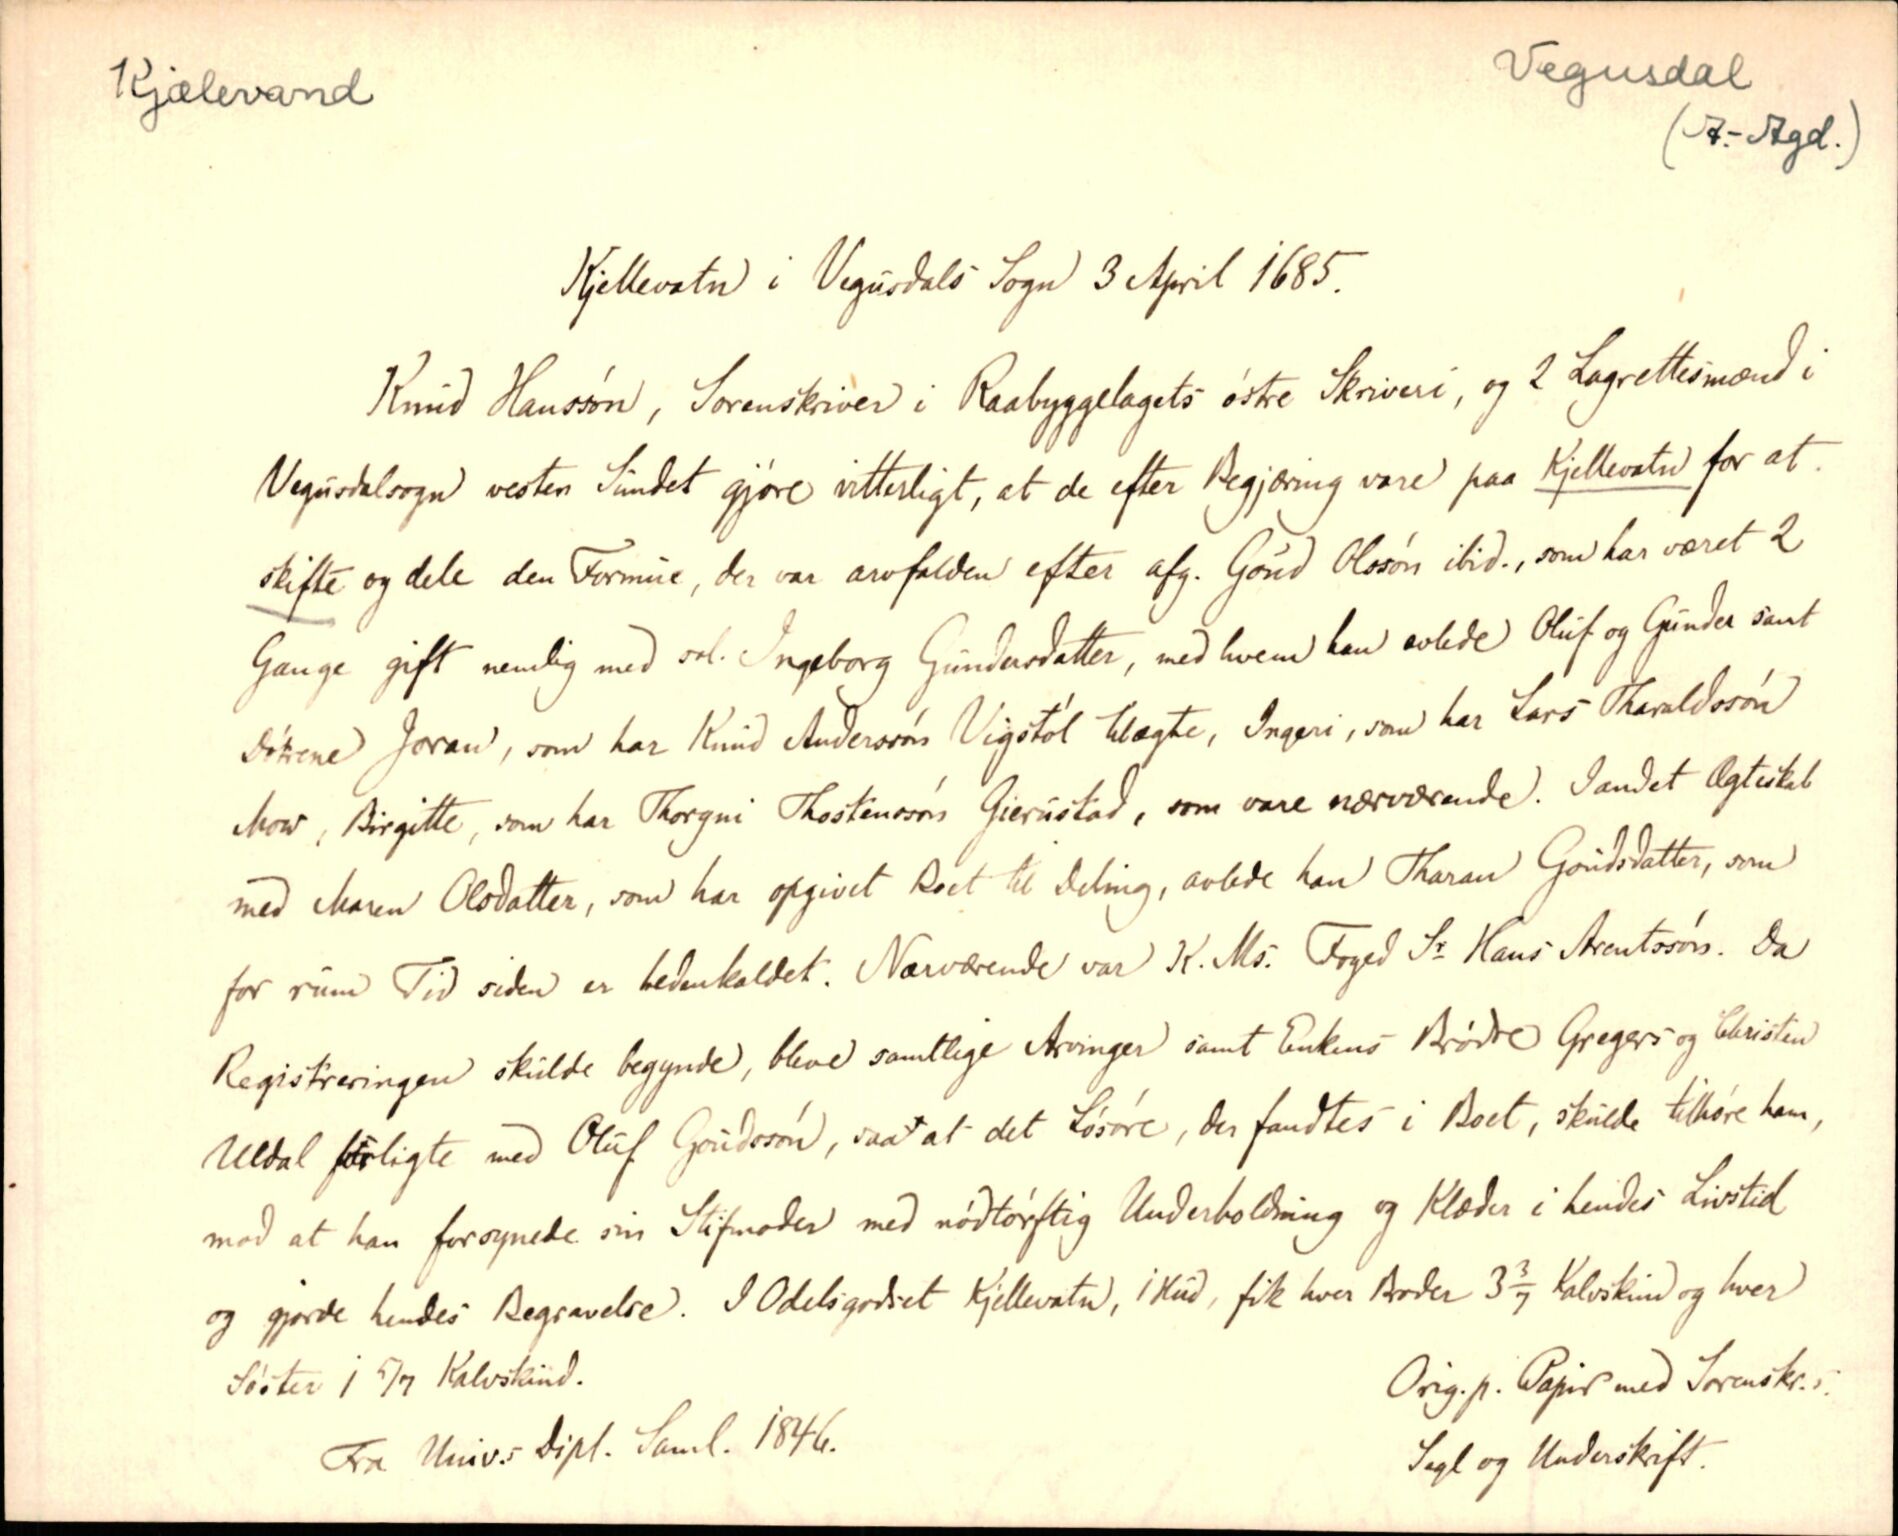 Kjælevand
Vegusdal
(A.-Agd.)
Kjellevatn i Vegusdals Sogn 3 April 1685.
Knud Hanssón, Sorenskriver i Raabyggelagets óstre Skriveri, og 2 Lagrettesmænd i
Vegusdalsogn vesten Sundet gjóre vitterligt, at de efter Begjæring vare paa Kjellevatn for at
skifte og dele den Formue, der var arvfalden efter afg. Góud Olssón ibid., som har været 2
Gange gift nemlig med sal. Ingeborg Gundersdatter, med hvem han avlede Oluf og Gunder samt
Dótrene Joran, som har Knud Anderssón Vigstól tilægte, Ingeri, som har Lars Tharaldssón
Mow, Birgitte, som har Thorgni Thostenssón Gierustad, som vare nærværende. I andet Ægteskab
med Maren Olsdatter, som har opgivet Boet til Deling, avlede han Tharan Góudsdatter, som
for rum Tid siden er hedenkaldet. Nærværende var K. Ms. Foged Sr Hans Arentssón. Da
Registreringen skulde begynde, bleve samtlige Arvinger samt Enkens Bródre Gregers og Christen
Uldal forligte med Oluf Góudssón, saa at det Lósóre, der fandtes i Boet, skulde tilhóre ham,
mod at han forsynede sin Stifmoder med nódtórftig Underholdning og Klæder i hendes Livstid
og gjorde hendes Begravelse. I Odelsgodset Kjellevatn, 1 Hud, fik hver Broder 3 3/7 Kalvskind og hver
Sóster 1 5/7 Kalvskind.
Orig. p. Papir med Sorenskr.s.
Fra Univ.s Dipl. Saml. 1846.
Segl og Underskrift.